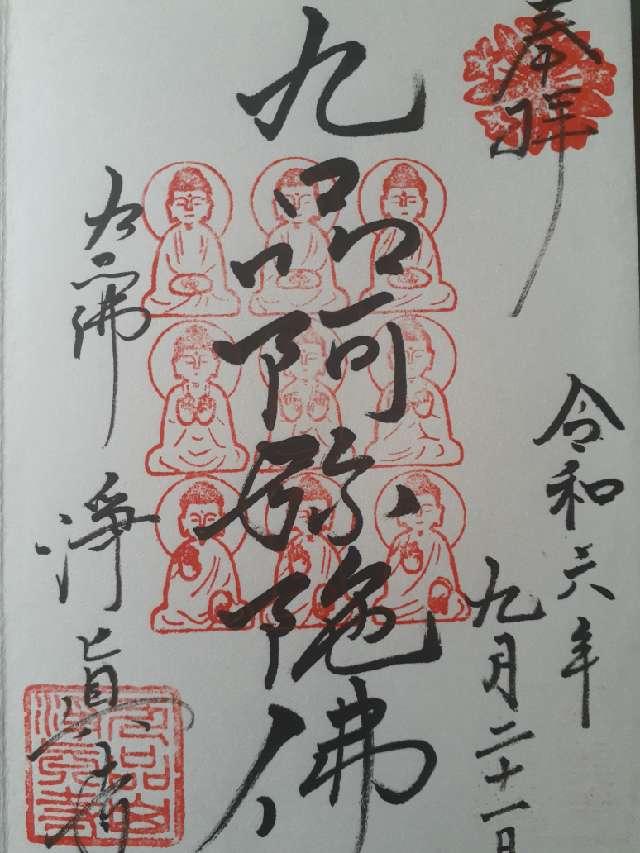 奉拝
令和六年
九月二十一日
九品阿弥陀佛
九品佛
淨真寺